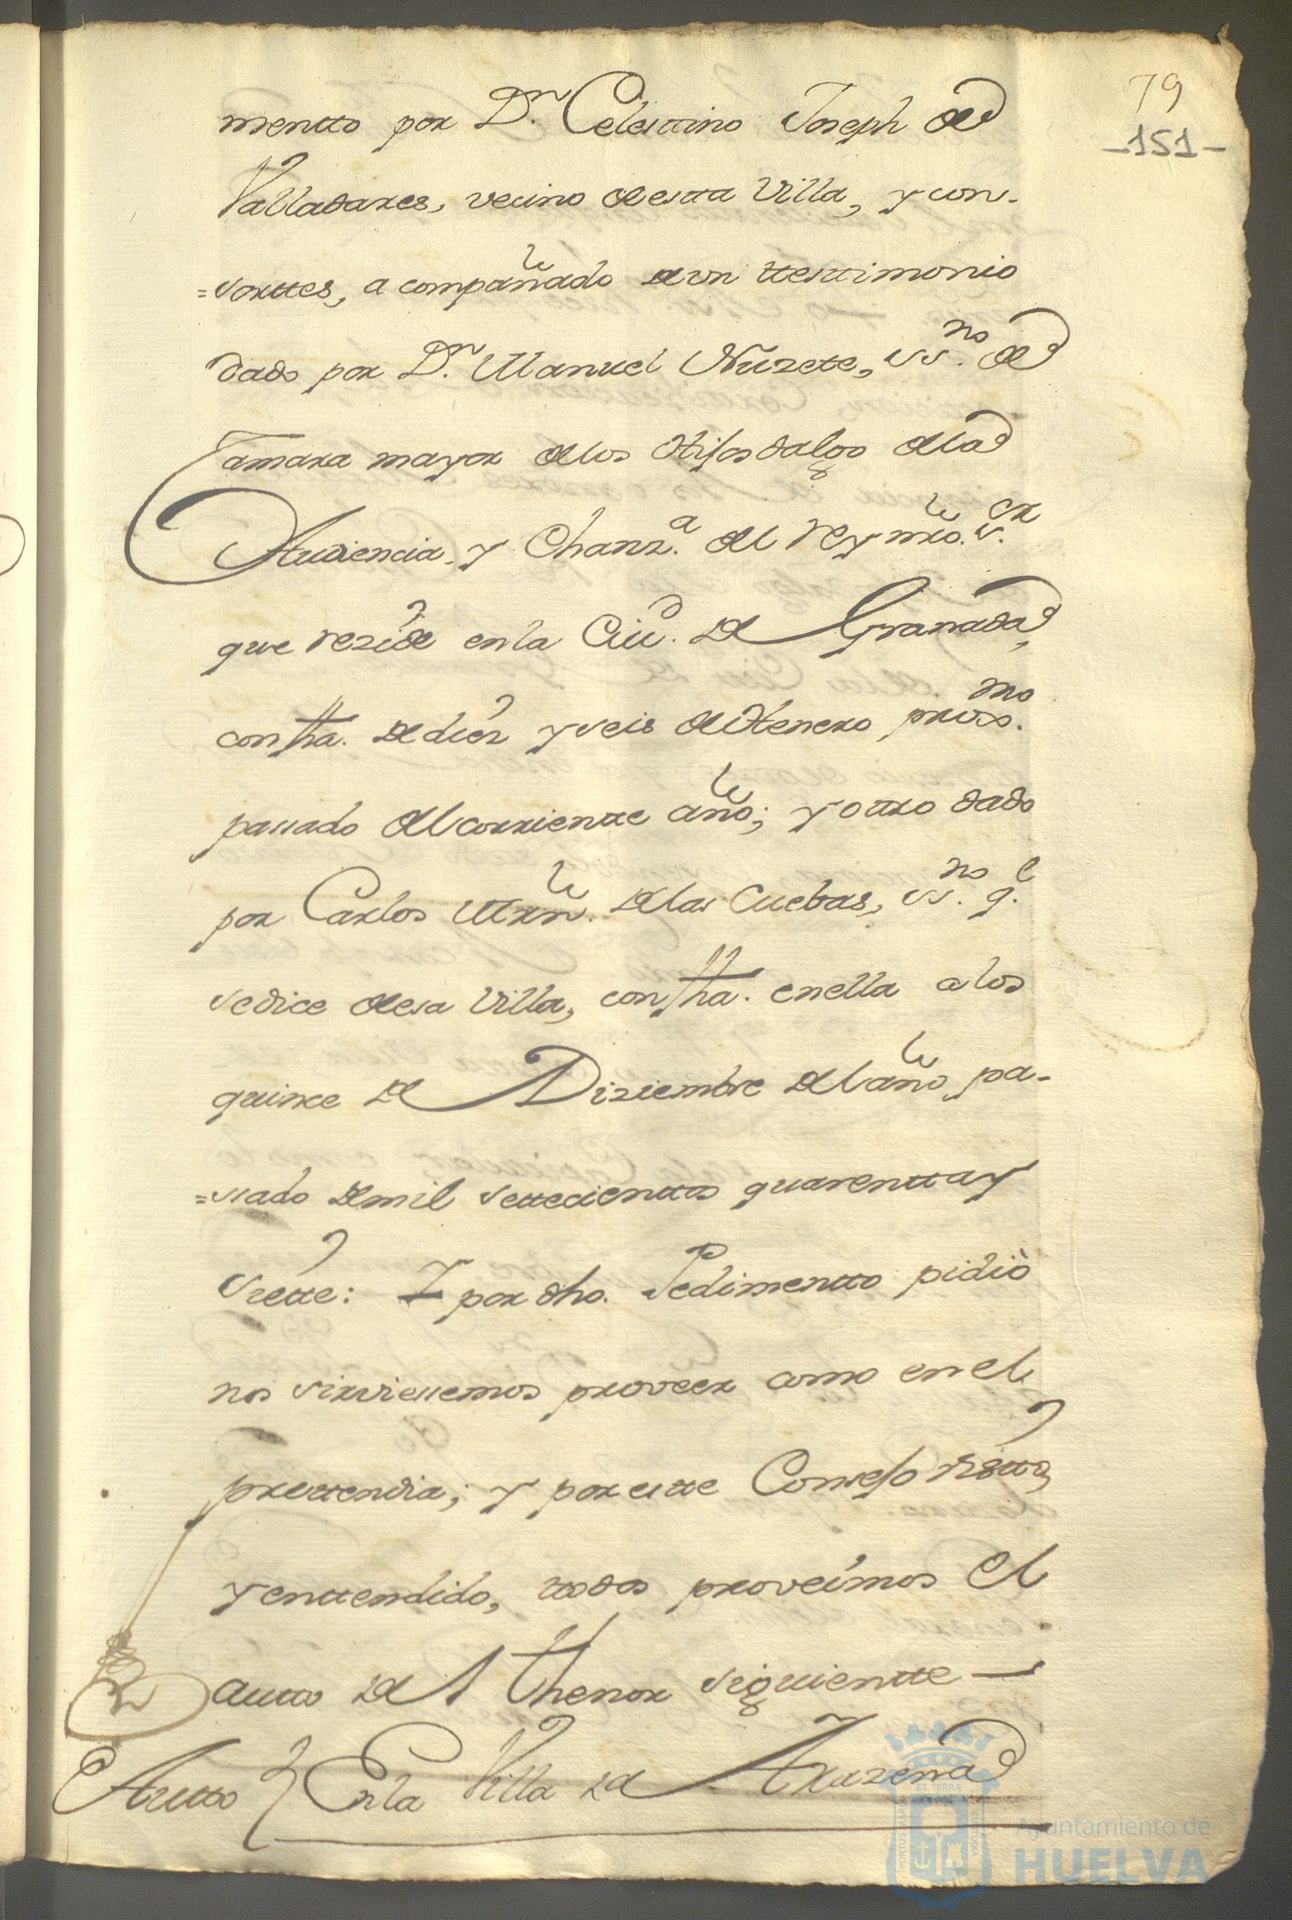 79
-151-
mentto por Dn. Celesttino Joseph de
Valladares, vecino de estta Villa, y con-
=sorttes, a compañado de un ttesttimonio
dado por Dn. Manuel Nuzete, ss.no de
Camara mayor de los Hijosdalgo de la
Audiencia, y Chanz.a del rey nro. s.or
que rezide en la Ciud. de Granada,
con fha. de diez y seis de Henero proxo.mo
passado del corrientte año; y ottro dado
por Carlos Mrn. de las Cuebas, ss.no q.e
se dice de esa Villa, con fha. en ella a los
quince de Diziembre del año pa-
=ssado de mil settecienttos quarentta y
siette: Y por dho. Pedimentto pidiò
nos sirviessemos proveer como en el
prettendia; y por estte Consejo visto,
y enttendido, ttodos proveímos el
autto del thenor siguientte —
Autto } En la Villa de Aruzena
Ayuntamiento de
HUELVA
PORTUS MARIS ET TERRAE CUSTODIA